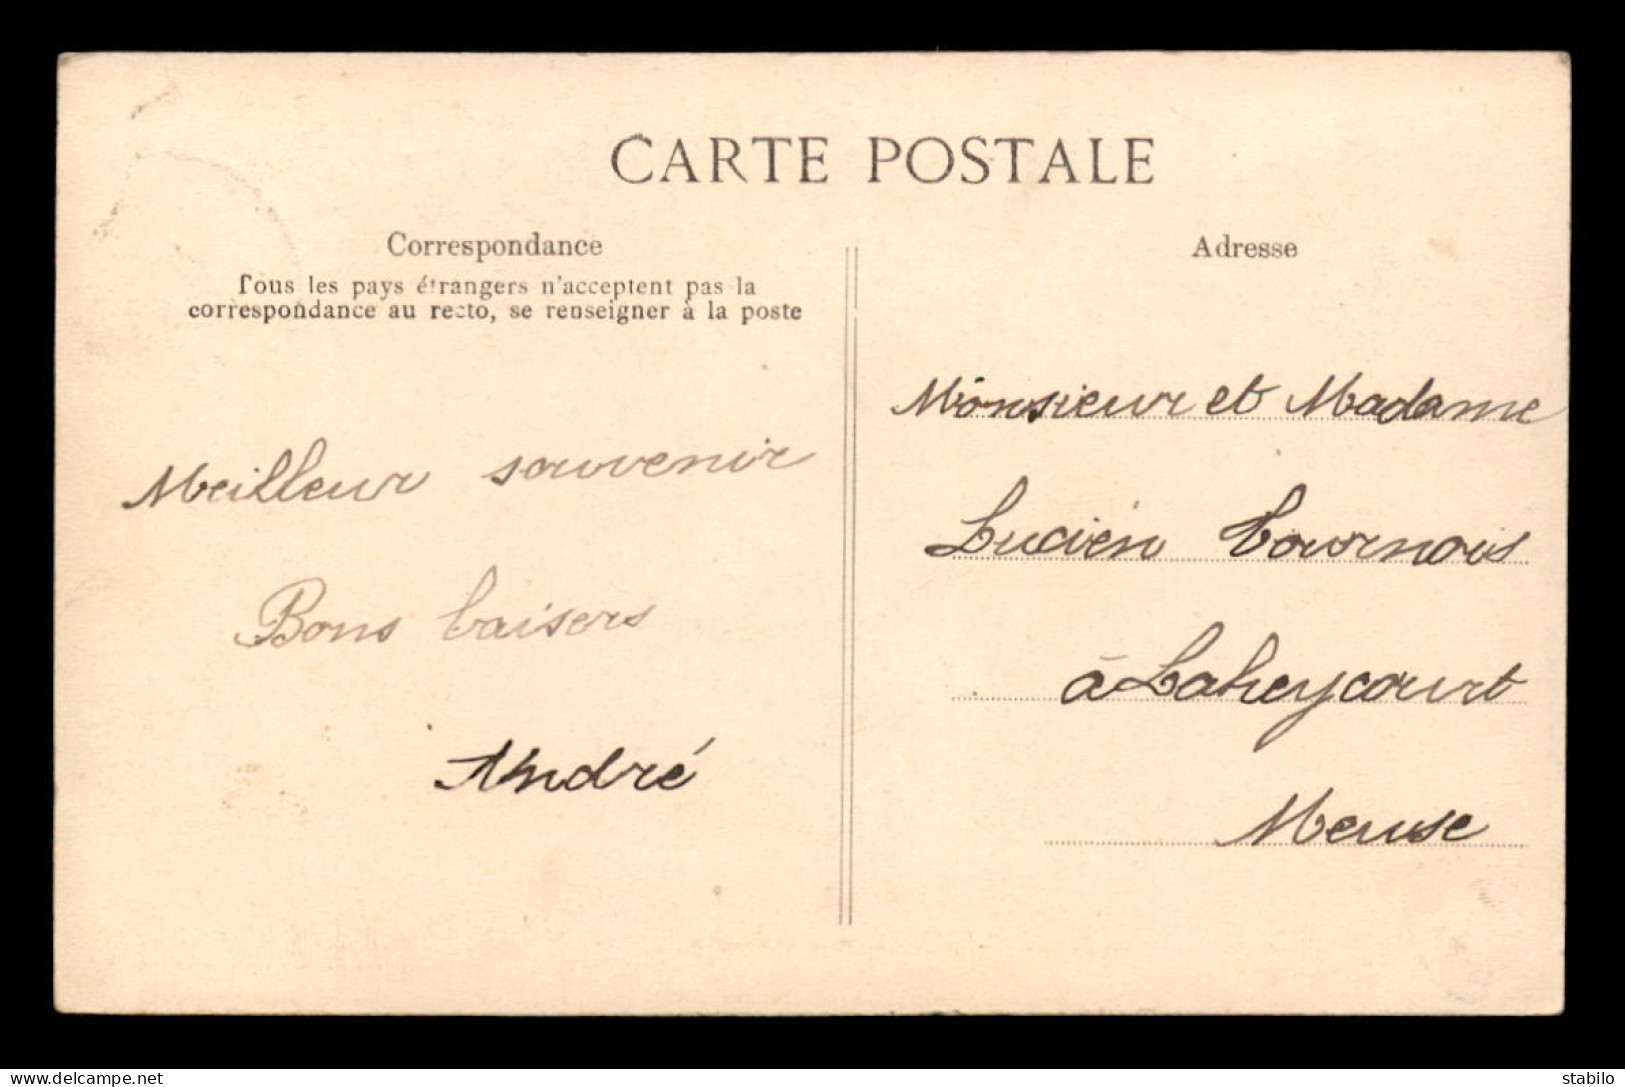 CARTE POSTALE
Correspondance
Tous les pays étrangers n'acceptent pas la
correspondance au recto, se renseigner à la poste
Meilleur souvenir
Bons baisers
André
Adresse
Monsieur et Madame
Lucien Tournois
à Laheycourt
Meuse
www.delcampe.net
stabilo